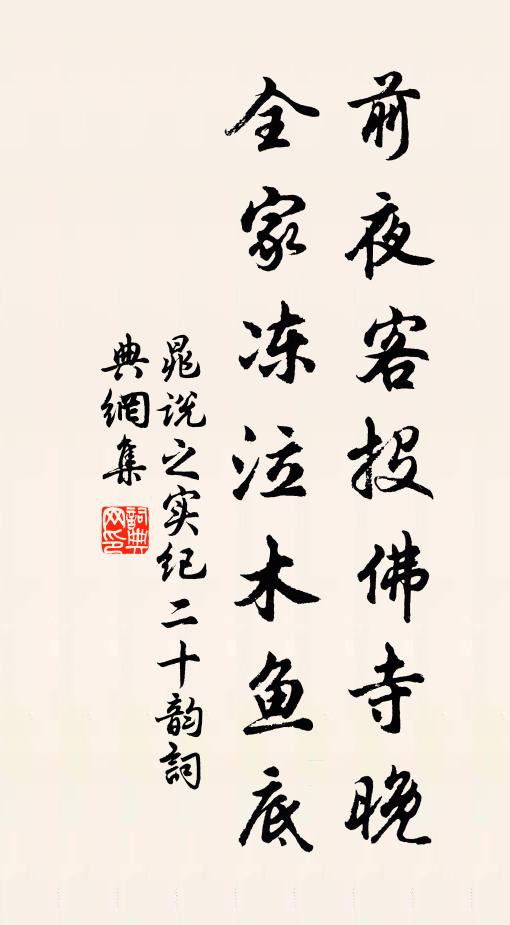 前夜客投佛寺晚
全家冻泣木鱼底
晁说之实纪二十韵詞
典網集
詞典网印